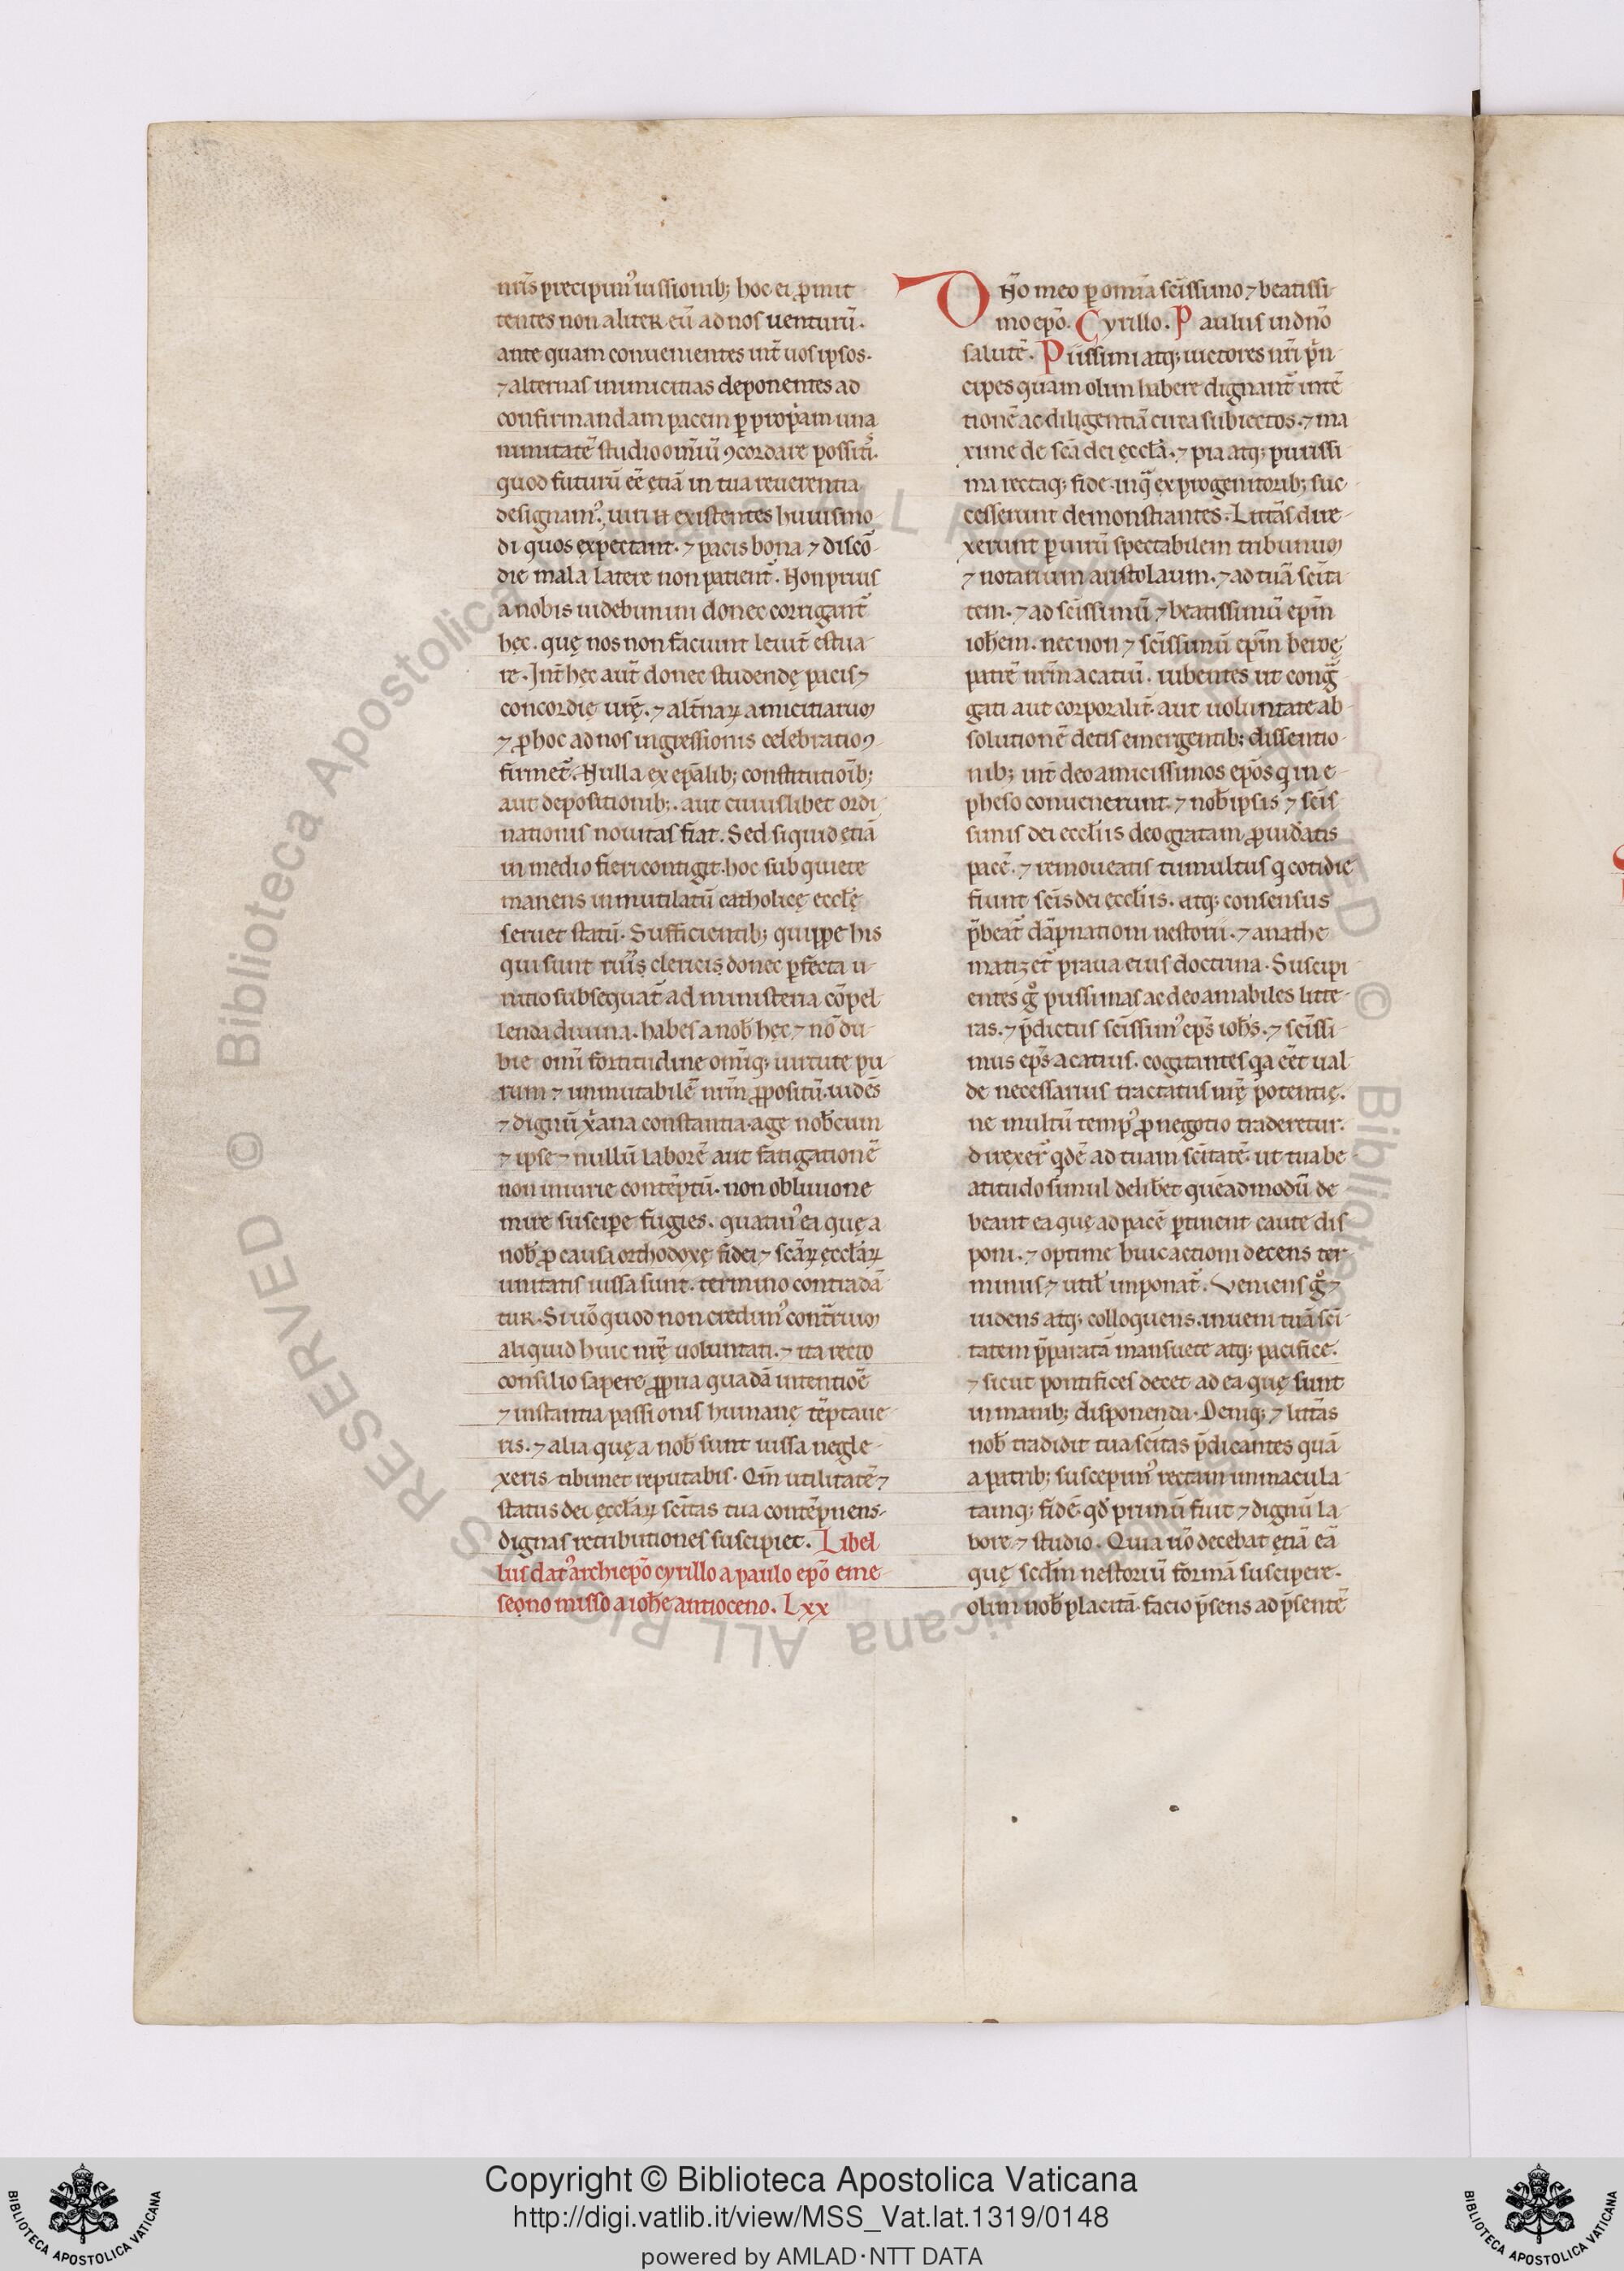 nr̄is precipimꝰ iussionib; hoc ei ꝓmit
tentes non aliter eū ad nos uenturū.
ante quam conuenientes int̄ uos ipsos.
⁊ alternas inimicitias deponentes ad
confirmandam pacem ꝑ propͥam una
nimitatē studio om̄iū ꝯcordare possitis.
quod futurū eē ętiā in tua reuerentia
designamꝰ. uiri n̄ existentes huiusmo
di quos expectant. ⁊ pacis bona ⁊ discō
die mala latere non patient̄. Non prius
a nobis uidebimini donec corrigant̄
hęc. quę nos non faciunt leuit̄ estua
re. Int̄ hęc aut̄ donec studendę pacis ⁊
concordię ur̄ę. ⁊ alt̄naꝝ amicitiarum
⁊ ꝑ hoc ad nos ingressionis celebratio ꝯ
firmet̄. Nulla ex ep̄alib; constitutioīb;
aut depositionib;. aut cuiuslibet ordi
nationis nouitas fiat. Sed siquid ętiā
in medio fieri contigit. hoc sub quiete
manens inmutilatū catholicę eccl̄ę
seruet statū. Sufficientib; quippe his
qui sunt riuis clericis donec ꝑfecta u
nitio subsequat̄ ad ministeria cōpel
lenda diuina. habes a nob̄ hęc ⁊ nō du
bie omī fortitudine om̄iq; uirtute pu
rum ⁊ inmutabilē nr̄m ꝓpositū. uidēs
⁊ dignū xāna constantia. age nob̄cum
⁊ ipse ⁊ nullū laborē aut fatigationē
non iniurie contēptū. non obliuione
mire suscipe fugies. quatinꝰ ea quę a
nob̄ ꝓ causa orthodoxę fidei ⁊ scāꝝ ęccl̄aꝝ
unitatis iussa sunt. termino contradā
tur. Si uō quod non credimꝰ contrͣrium
aliquid huic nr̄ę uoluntati. ⁊ ita recto
consilio sapere ꝓpria quadā intentiōe
⁊ instantia passionis humanę tēptaue
ris. ⁊ alia quę a nob̄ sunt iussa negle
xeris tibimet reputabis. Qm̄ utilitatē ⁊
status dei ęccl̄aꝝ scīitas tua contēpnens
dignas retributiones suscipiet. Libel
lus datꝰ archiepō cyrillo a paulo epō eme
seono misso a ioh̄e antioceno. Lxx
Dn̄o meo ꝑ omīa scīssimo ⁊ beatissi
mo epō. Cyrillo. Paulus in dn̄o
salutē. Piissimi atq; uictores nr̄i pͥn
cipes quam olim habere dignant̄ intē
tionē ac diligentiā circa subiectos. ⁊ ma
xime de scā dei ęccl̄a. ⁊ pia atq; purissi
ma rectaq; fide. inqͣ ex progenitorib; suc
cesserunt demonstrantes. Littͣas dire
xerunt ꝑ uirū spectabilem tribunum
⁊ notarium aristolaum. ⁊ ad tuā scīta
tem. ⁊ ad scīssimū ⁊ beatissimū epm̄
ioh̄em. nec non ⁊ scīssimū epm̄ beroę
patrē nr̄m acatiū. iubentes ut congͣ
gati aut corporalit̄. aut uoluntate ab
solutionē detis emergentib; dissentio
nib; int̄ deo amicissimos epōs qͥ in e
pheso conuenerunt. ⁊ nob̄ ipsis ⁊ scīs
simis dei eccl̄iis deo gratam ꝓuideatis
pacē. ⁊ remoueatis tumultus qͥ cotidie
fiunt scīs dei ęccl̄iis. atq; consensus
p̄beat̄ dāpnationi nestorii. ⁊ anathe
matizet̄ praua eius doctrina. Suscipi
entes gͦ piissimas ac deo amabiles litte
ras. ⁊ p̄dictus scīssimꝰ ep̄s ioh̄s. ⁊ scīssi
mus ep̄s acatius. cogitantes qͥa eēt ual
de necessarius tractatus ur̄ę potentię.
ne multū tempꝰ ꝓ negotio traderetur.
direxer̄ qͥdē ad tuam scīitatē. ut tua be
atitudo simul deliberet quēadmodū de
beant ea quę ad pacē ꝑtinent caute dis
poni. ⁊ optime huic actioni decens ter
minus ⁊ util̄ imponat̄. Veniens gͦ ⁊
uidens atq; colloquens. inueni tuā scī
tatem p̄paratā mansuete atq; pacifice.
⁊ sicut pontifices decet ad ea quę sunt
in manib; disponenda. Deniq; ⁊ littͣas
nob̄ tradidit tua scīitas p̄dicantes quā
a patrib; suscepimꝰ rectam inmacula
tamq; fidē. qd̄ primū fuit ⁊ dignū la
bore ⁊ studio. Quia uō decebat ętiā eā
quę scdm̄ nestoriū formā suscipere.
olim uob̄ placitā. facio p̄sens ad p̄sentē
Copyright © Biblioteca Apostolica Vaticana
http://digi.vatlib.it/view/MSS_Vat.lat.1319/0148
powered by AMLAD·NTT DATA
© Biblioteca Apostolica Vaticana ALL RIGHTS RESERVED
BIBLIOTECA APOSTOLICA VATICANA
BIBLIOTECA APOSTOLICA VATICANA